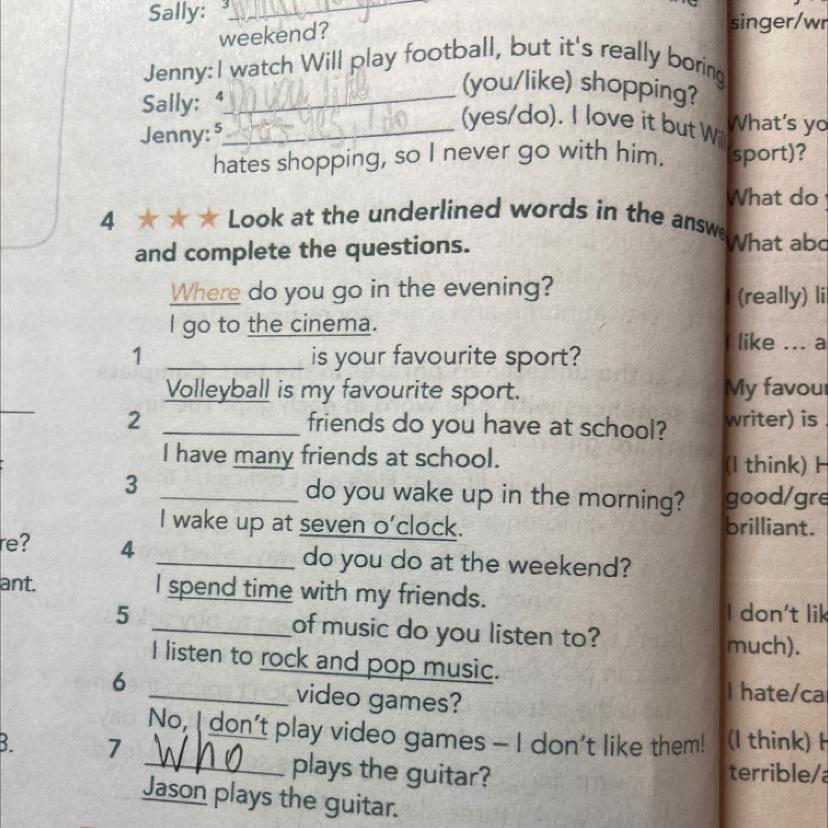 Sally: 3
weekend?
Jenny: I watch Will play football, but it's really boring
Sally: 4 Do you like (you/like) shopping?
Jenny: 5 Yes, I do (yes/do). I love it but Will
hates shopping, so I never go with him.
4 ★ ★ ★ Look at the underlined words in the answe
and complete the questions.
Where do you go in the evening?
I go to the cinema.
1 ____________ is your favourite sport?
Volleyball is my favourite sport.
2 ____________ friends do you have at school?
I have many friends at school.
3 ____________ do you wake up in the morning?
I wake up at seven o'clock.
4 ____________ do you do at the weekend?
I spend time with my friends.
5 ____________ of music do you listen to?
I listen to rock and pop music.
6 ____________ video games?
No, I don't play video games – I don't like them!
7 Who plays the guitar?
Jason plays the guitar.
re?
ant.
3.
singer/wr
What's yo
sport)?
What do y
What abo
I (really) li
I like ... a
My favour
writer) is
(I think) H
good/gre
brilliant.
I don't lik
much).
I hate/ca
(I think) H
terrible/a